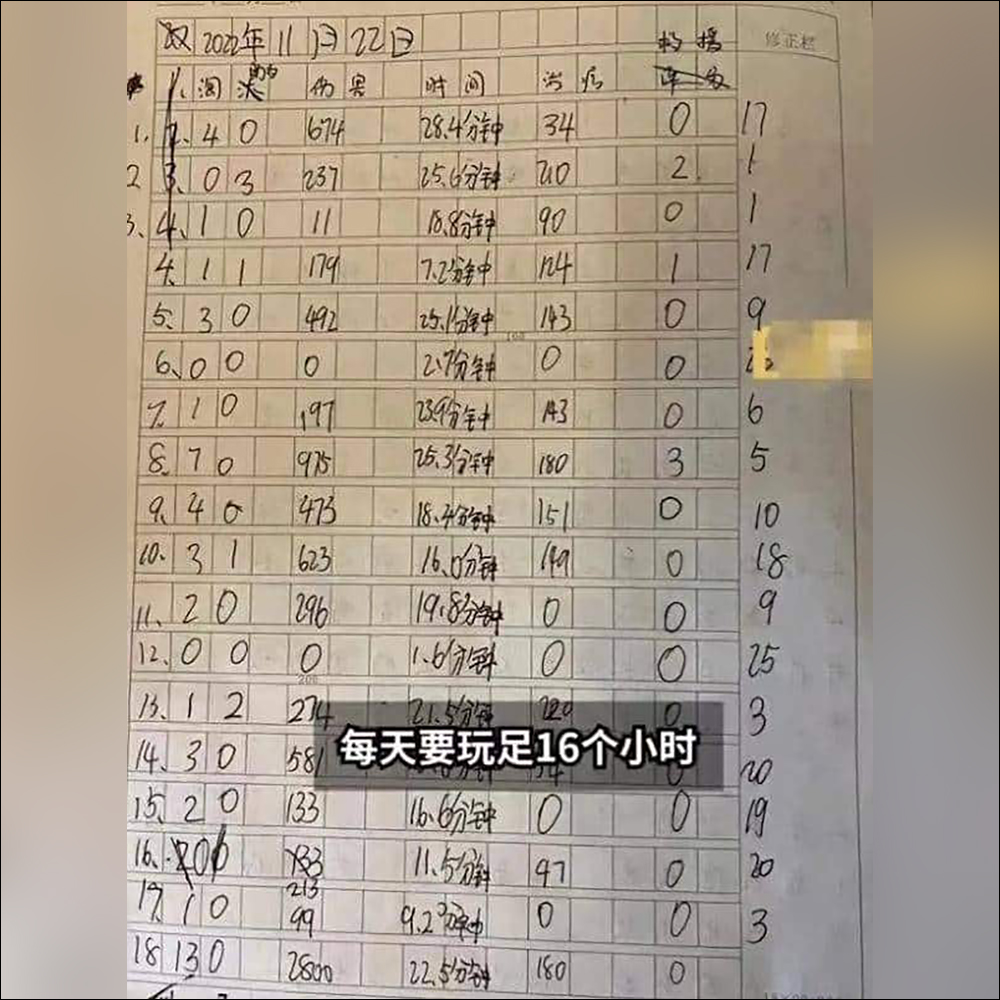 2022年11月22日
修正栏
淘 伤害 时间 治疗
1. 2. 4 0 674 28.4分钟 34 0 17
2 3. 0 3 237 25.6分钟 210 2 1
3. 4. 1 0 11 18.8分钟 90 0 1
4. 1 1 179 7.2分钟 124 1 17
5. 3 0 492 25.1分钟 143 0 9
6. 0 0 0 2.7分钟 0 0
7. 1 0 197 23.9分钟 143 0 6
8. 7 0 975 25.3分钟 180 3 5
9. 4 0 473 18.4分钟 151 0 10
10. 3 1 623 16.0分钟 149 0 18
11. 2 0 296 19.8分钟 0 0 9
12. 0 0 0 1.6分钟 0 0 25
200
13. 1 2 274 21.5分钟 220 0 3
每天要玩足16个小时
14. 3 0 581 20
15. 2 0 133 16.6分钟 0 0 19
16. 11.5分钟 97 0 20
213
17. 1 0 99 9.2分钟 0 0 3
18 13 0 2800 22.5分钟 180 0